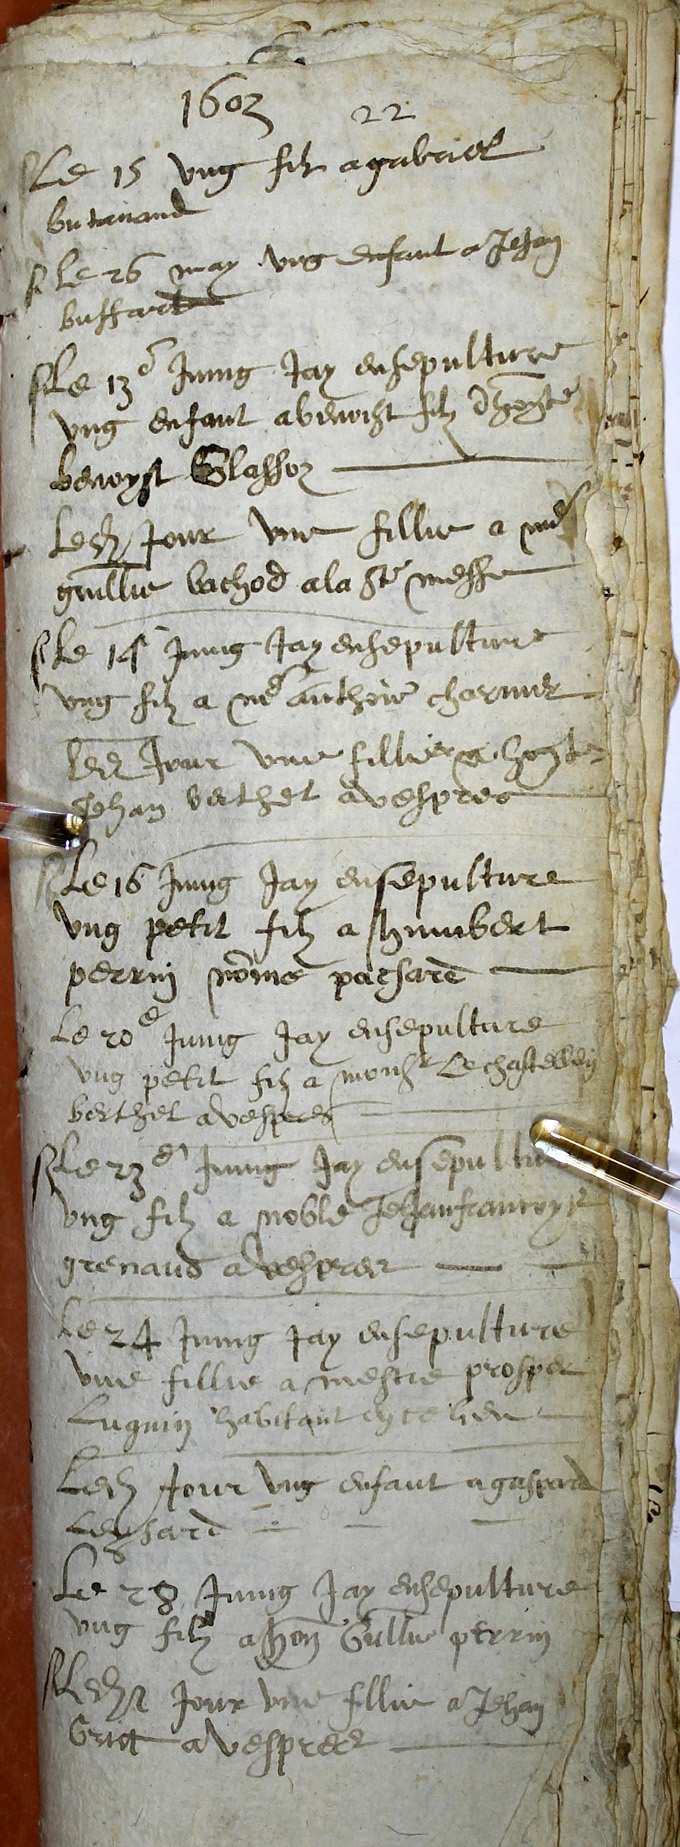 1603 22
Le 15 ung filz a gabriel
butavand
Le 26 may ung enfant a Jehan
buffard
Le 13e Juing Jay ensepulture
ung enfant a benoist filz dhonste
benoyst Glassoz
Ledz Jour une fillie a me
guillie bachod a la ste messe
Le 14 Juing Jay ensepulture
ung filz a me anthoie charmier
led Jour une fillie a honste
Jehan berthet a vespres
Le 16 Juing Jay ensepulture
ung petit filz a humbert
perrin nôme passard
Le 20e Juing Jay ensepulture
ung petit filz a monsr Le chastellein
berthet a vespres
Le 23e Juing Jay ensepulture
ung filz a noble Jehanfrancoys
grenaud a vespres
Le 24 Juing Jay ensepulture
une fillie a mestre prosper
Luguin habitant en ce lieu
Ledz Jour ung enfant a gaspard
Leysard
Le 28 Juing Jay ensepulture
ung filz a hon Guillie perrin
Ledz Jour une fillie a Jehan
a vespres